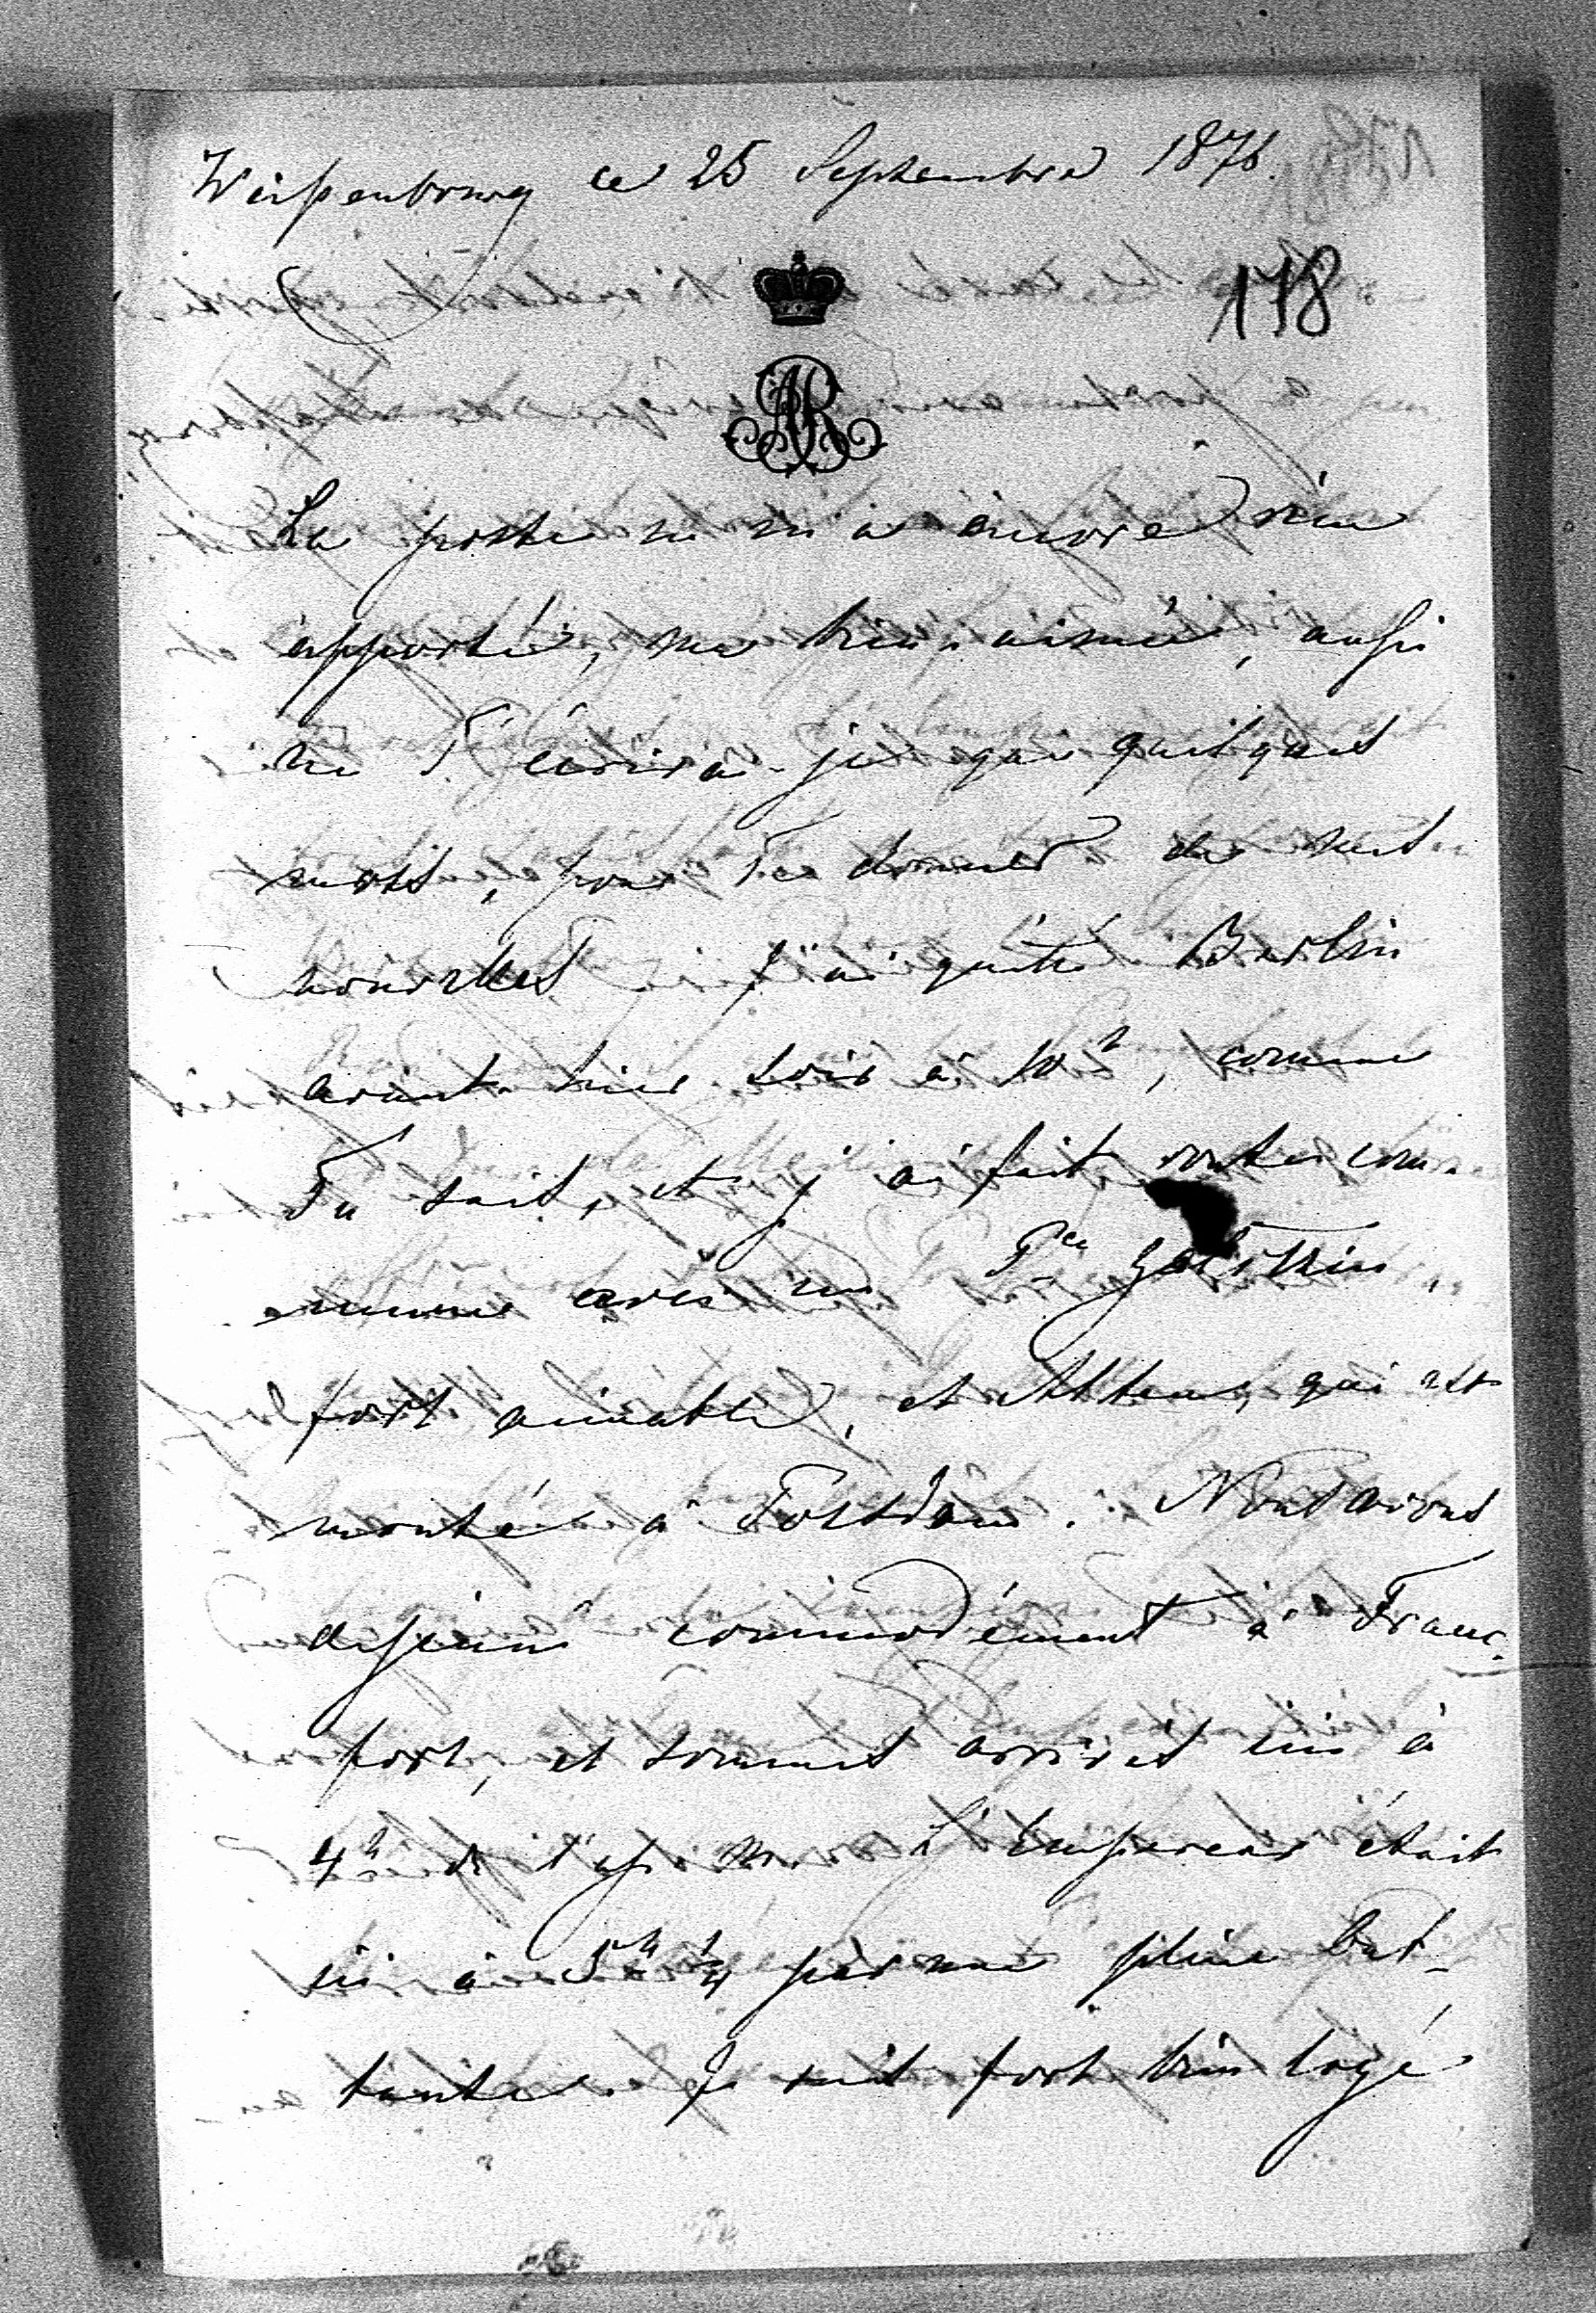 Weißenbourg ce 25 Septembre 1876.
178
AR
La poste ne m'a encore rien
apporté, ma bien-aimée, aussi
ne T'écrirai-je que quelques
mots, pour Te donner de mes
nouvelles. J'ai quitté Berlin
avant-hier soir à 10h, comme
Tu sais, et j'ai fait route com-
mune avec une Pce Galitzin,
fort aimable, et qui est
monté à Potsdam. Nous avons
dejeuné commodément à Franc-
fort, et sommes arrivés ici à
4h de l'ap. m. L'Empereur était
ici à 5h 1/4 par une pluie bat-
tante. Je suis fort bien logé